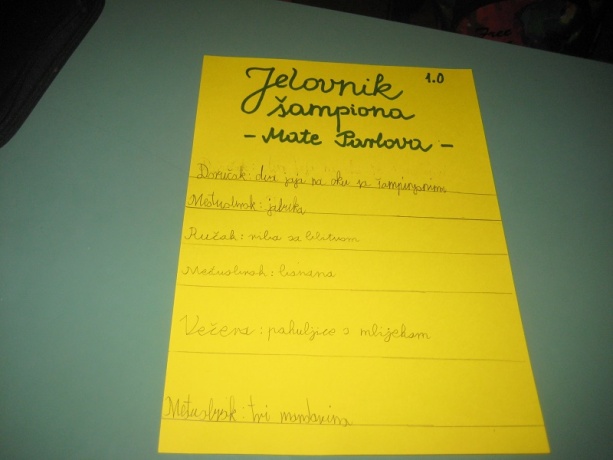 Jelovnik 1.0
šampiona
- Mate Parlova -
Doručak: dva jaja na oku sa šampinjonima
Međuobrok: jabuka
Ručak: riba sa blitvom
Međuobrok: banana
Večera: pahuljice s mlijekom
Međuobrok: tri mandarine
Free